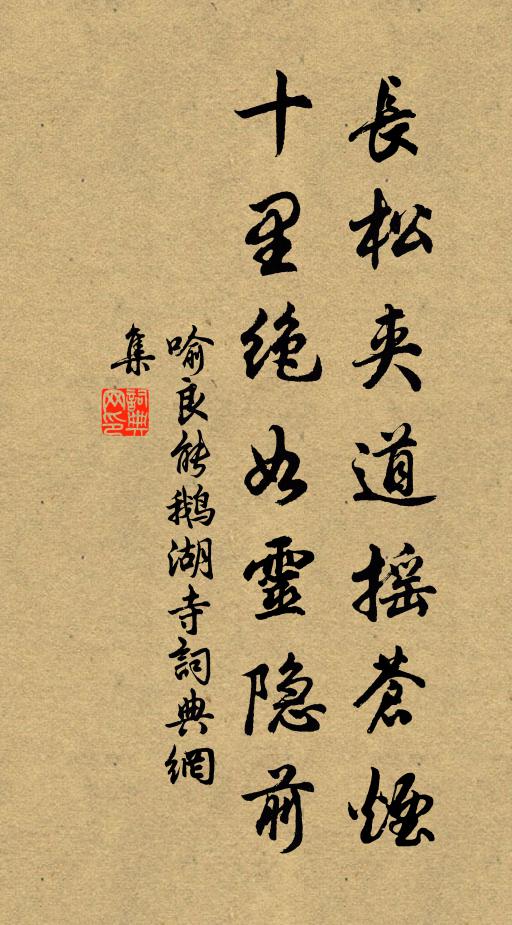 長松夹道摇蒼煙
十里絶如靈隐前
喻良能鵝湖寺詞典網
集
詞典網印